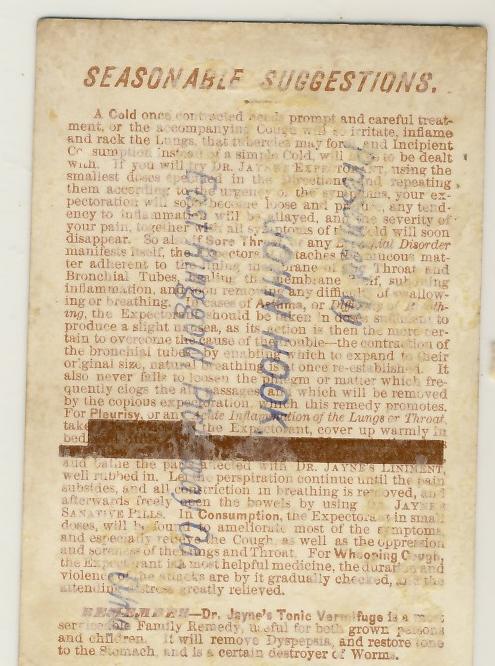 SEASONABLE SUGGESTIONS.
A Cold once contracted needs prompt and careful treat-
ment, or the accompanying Cough will so irritate, inflame
and rack the Lungs, that tubercles may form, and Incipient
Consumption instead of a simple Cold, will have to be dealt
with. If you will try DR. JAYNE'S EXPECTORANT, using the
smallest doses given in the Directions and repeating
them according to the urgency of the symptoms, your ex-
pectoration will soon become loose and any tend-
ency to inflammation will be allayed, and the severity of
your pain, together with all symptoms of the Cold will soon
disappear. So also if Sore Throat or any Bronchial Disorder
manifests itself, the Expectorant detaches the mucous mat-
ter adherent to the lining membrane of the Throat and
Bronchial Tubes, the membrane itself, subduing
inflammation, and soon removing any difficulty of swallow-
ing or breathing. In cases of Asthma, or Difficulty of Breath-
ing, the Expectorant should be taken in doses sufficient to
produce a slight nausea, as its action is then the more cer-
tain to overcome the cause of the trouble—the contraction of
the bronchial tubes, by enabling which to expand to their
original size, natural breathing is at once re-established. It
also never fails to loosen the phlegm or matter which fre-
quently clogs the air passages, and which will be removed
by the copious expectoration, which this remedy promotes.
For Pleurisy, or an Acute Inflammation of the Lungs or Throat,
take the Expectorant, cover up warmly in
bed
and bathe the part affected with DR. JAYNE'S LINIMENT,
well rubbed in. Let the perspiration continue until the pain
subsides, and all restriction in breathing is removed, and
afterwards freely open the bowels by using JAYNE'S
SANATIVE PILLS. In Consumption, the Expectorant in small
doses, will be found to ameliorate most of the symptoms
and especially relieve the Cough, as well as the oppression
and soreness of the Lungs and Throat. For Whooping Cough,
the Expectorant is a most helpful medicine, the duration and
violence of the attacks are by it gradually checked, and the
attending distress greatly relieved.
REMEMBER—Dr. Jayne's Tonic Vermifuge is a most
serviceable Family Remedy, useful for both grown persons
and children. It will remove Dyspepsia, and restore tone
to the Stomach, and is a certain destroyer of Worms.
JOHN HOOK